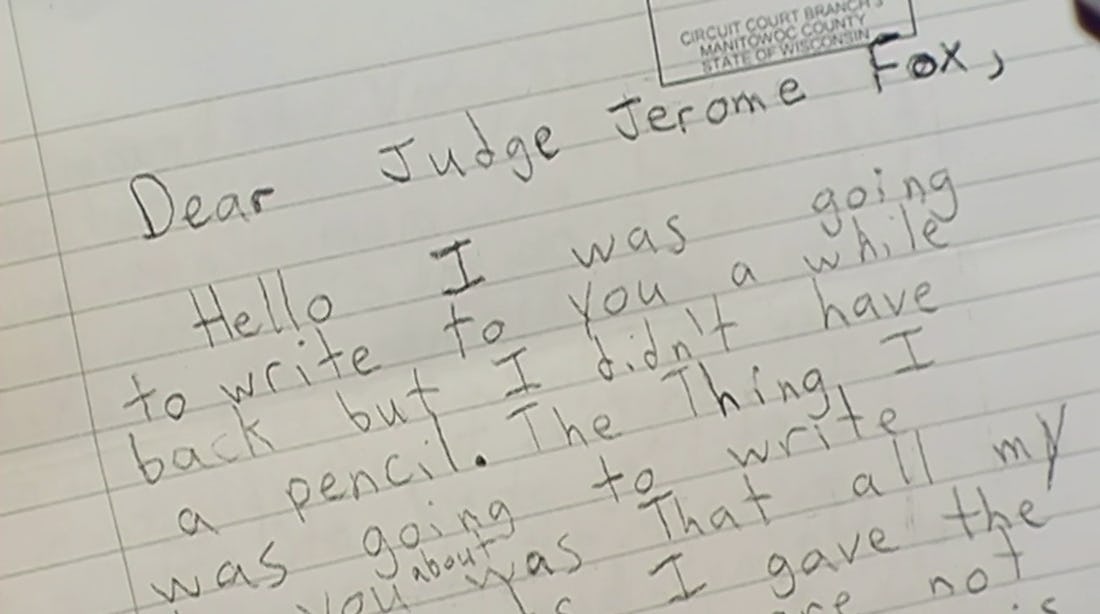 CIRCUIT COURT BRANCH 3
MANITOWOC COUNTY
STATE OF WISCONSIN
Dear Judge Jerome Fox,
Hello I was going
to write to you a while
back but I didn't have
a pencil. The Thing I
was going to write
you about was That all my
I gave the
not